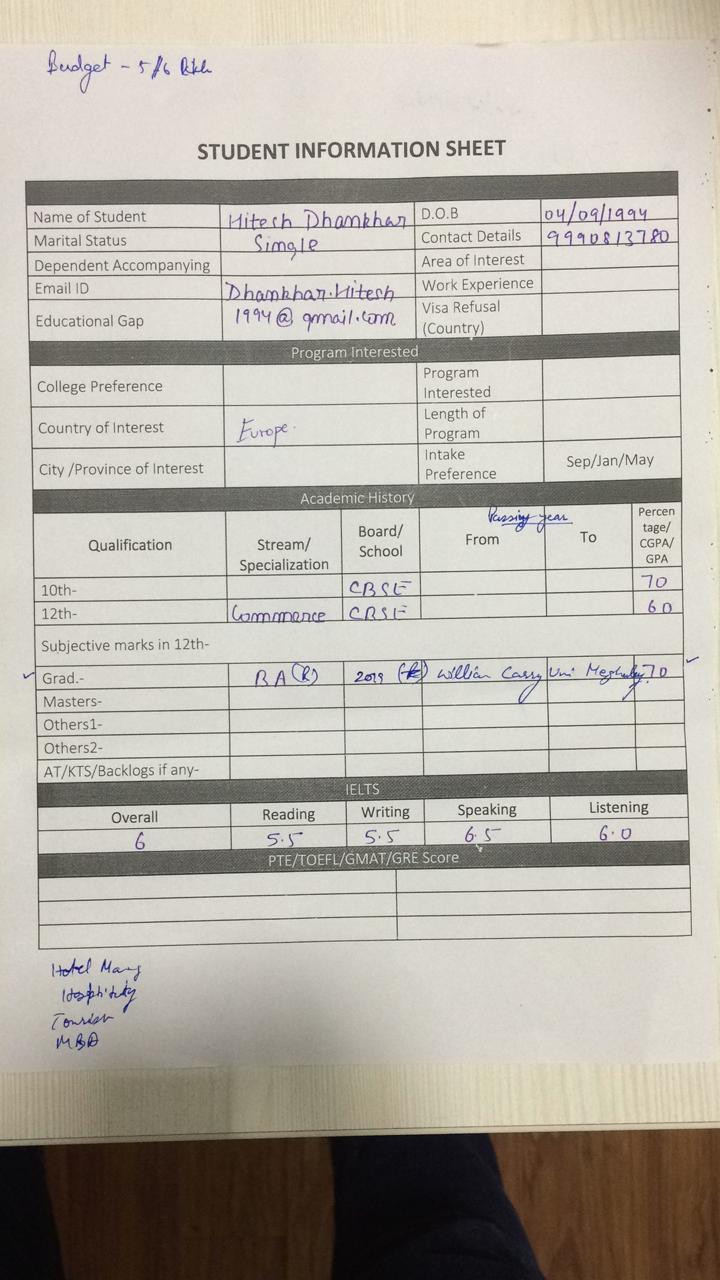 Budget - 5/6
STUDENT INFORMATION SHEET
Name of Student Hitesh Dhankhar D.O.B 04/09/1994
Marital Status Single Contact Details 9990813780
Dependent Accompanying Area of Interest
Email ID Dhankhar.Hitesh Work Experience
Educational Gap 1994@gmail.com Visa Refusal (Country)
Program Interested
College Preference Program Interested
Country of Interest Europe. Length of Program
City /Province of Interest Intake Preference Sep/Jan/May
Academic History
Passing year
Qualification Stream/ Specialization Board/ School From To Percen tage/ CGPA/ GPA
10th- CBSE 70
12th- Commerce CBSE 60
Subjective marks in 12th-
Grad.- BA (R) 2019 Willian Carry Uni 70
Masters-
Others1-
Others2-
AT/KTS/Backlogs if any-
IELTS
Overall Reading Writing Speaking Listening
6 5.5 5.5 6.5 6.0
PTE/TOEFL/GMAT/GRE Score
Hotel Mang
Hosptitity
Tourism
MBA